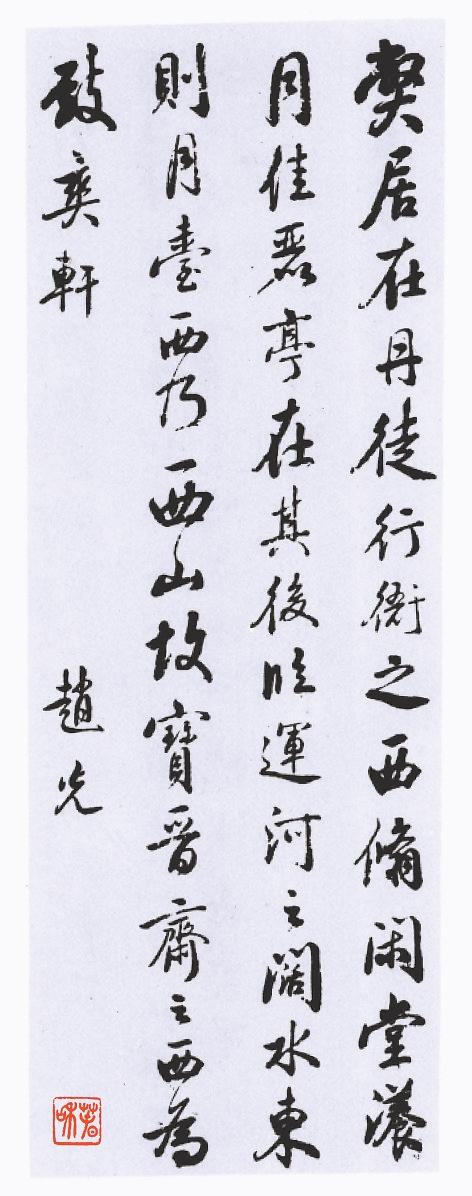 弊居在丹徒行衙之西翛閑堂漾
月佳麗亭在其後臨運河之闊水東
則月臺西乃西山故寶晉齋之西為
致爽軒
趙光